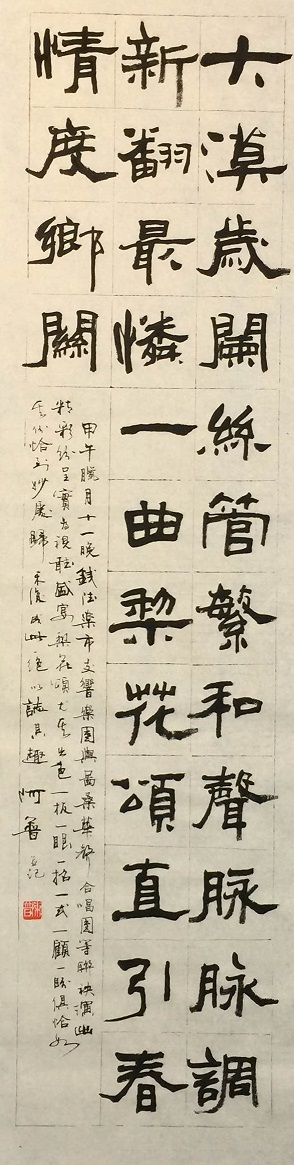 大漠歲闌絲管繁和聲脉脉調
新翻最憐一曲梨花頌直引春
情度鄉關
甲午臘月十一晚錢法樂市交響樂團與茵桑華聲合唱團等聯袂演出
精彩紛呈實為視聽盛宴梨花頌尤為出色一板一眼一招一式一顧一盼俱恰如
其份恰到妙處歸來後成此一絕以誌其趣 阿魯並記